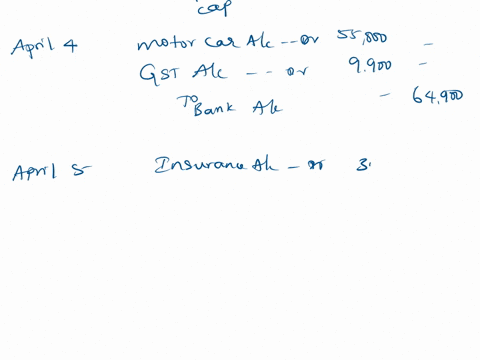 cap
April 4 Motor car A/c -- Dr 55,000 -
GST A/c -- Dr 9.900 -
To Bank A/c - 64,900
April 5 Insurance A/c - Dr 3.